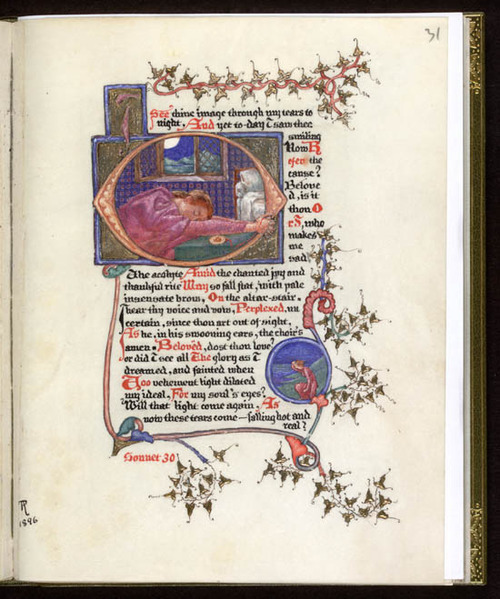 31
I see thine image through my tears to
night, And yet to-day I saw thee
smiling
How R
efer the
cause?
Belove
d, is it
thou O
r I, who
makes
me
sad
The acolyte Amid the chanted joy and
thankful rite May so fall flat, with pale
insensate brow, On the altar-stair.
I hear thy voice and vow, Perplexed, un
certain, since thou art out of sight,
As he, in his swooning ears, the choir's
amen. Beloved, dost thou love?
or did I see all The glory as I
dreamed, and fainted when
Too vehement light dilated
my ideal, For my soul's eyes?
Will that light come again, As
now these tears come—falling hot and
real?
Sonnet 30
1896